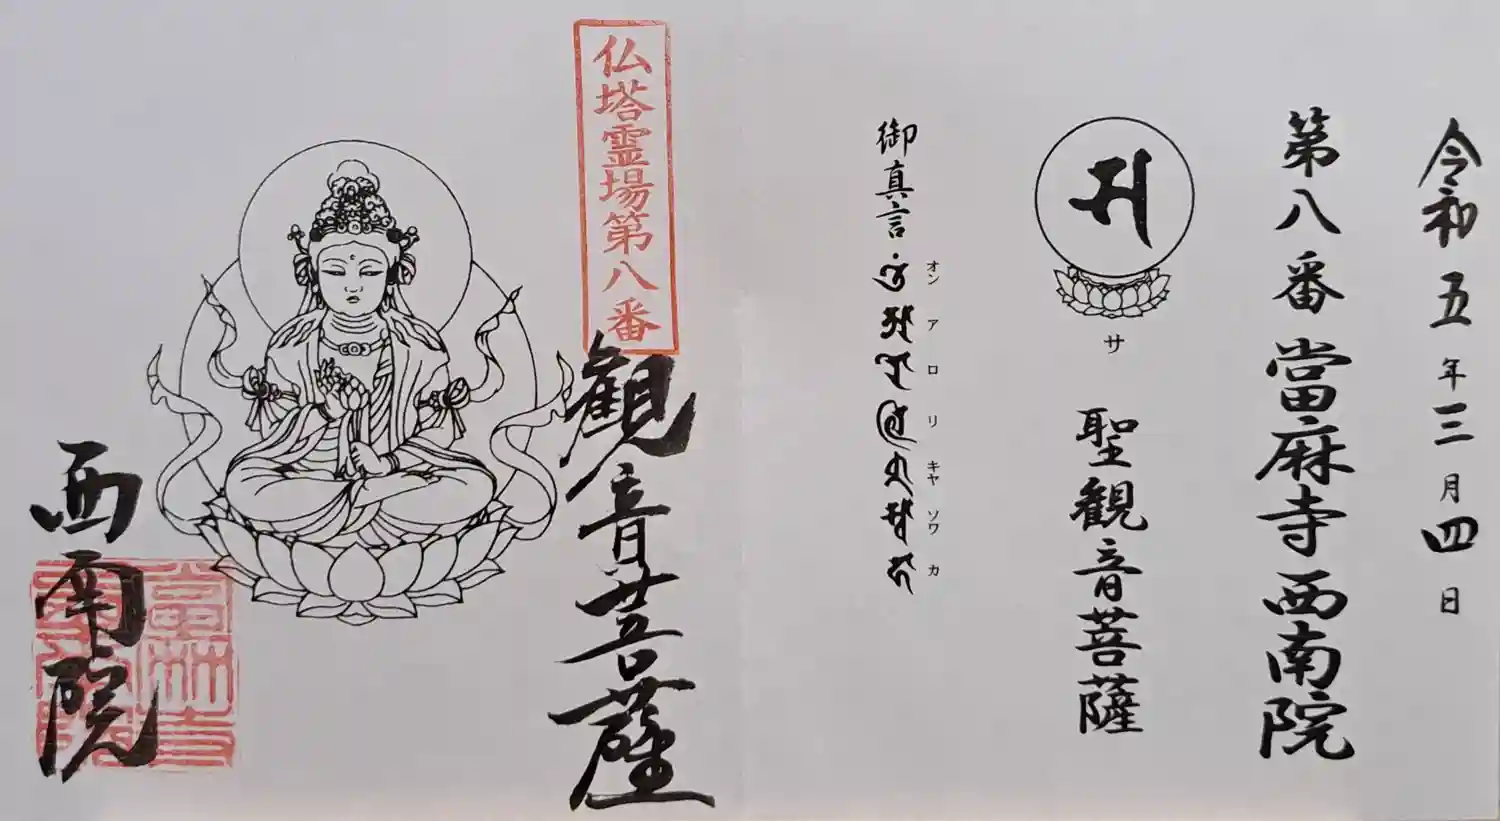 令和五年三月四日
第八番 當麻寺西南院
サ
聖観音菩薩
御真言
オン ア ロ リ キャ ソワ カ
仏塔霊場第八番
観音菩薩
西南院